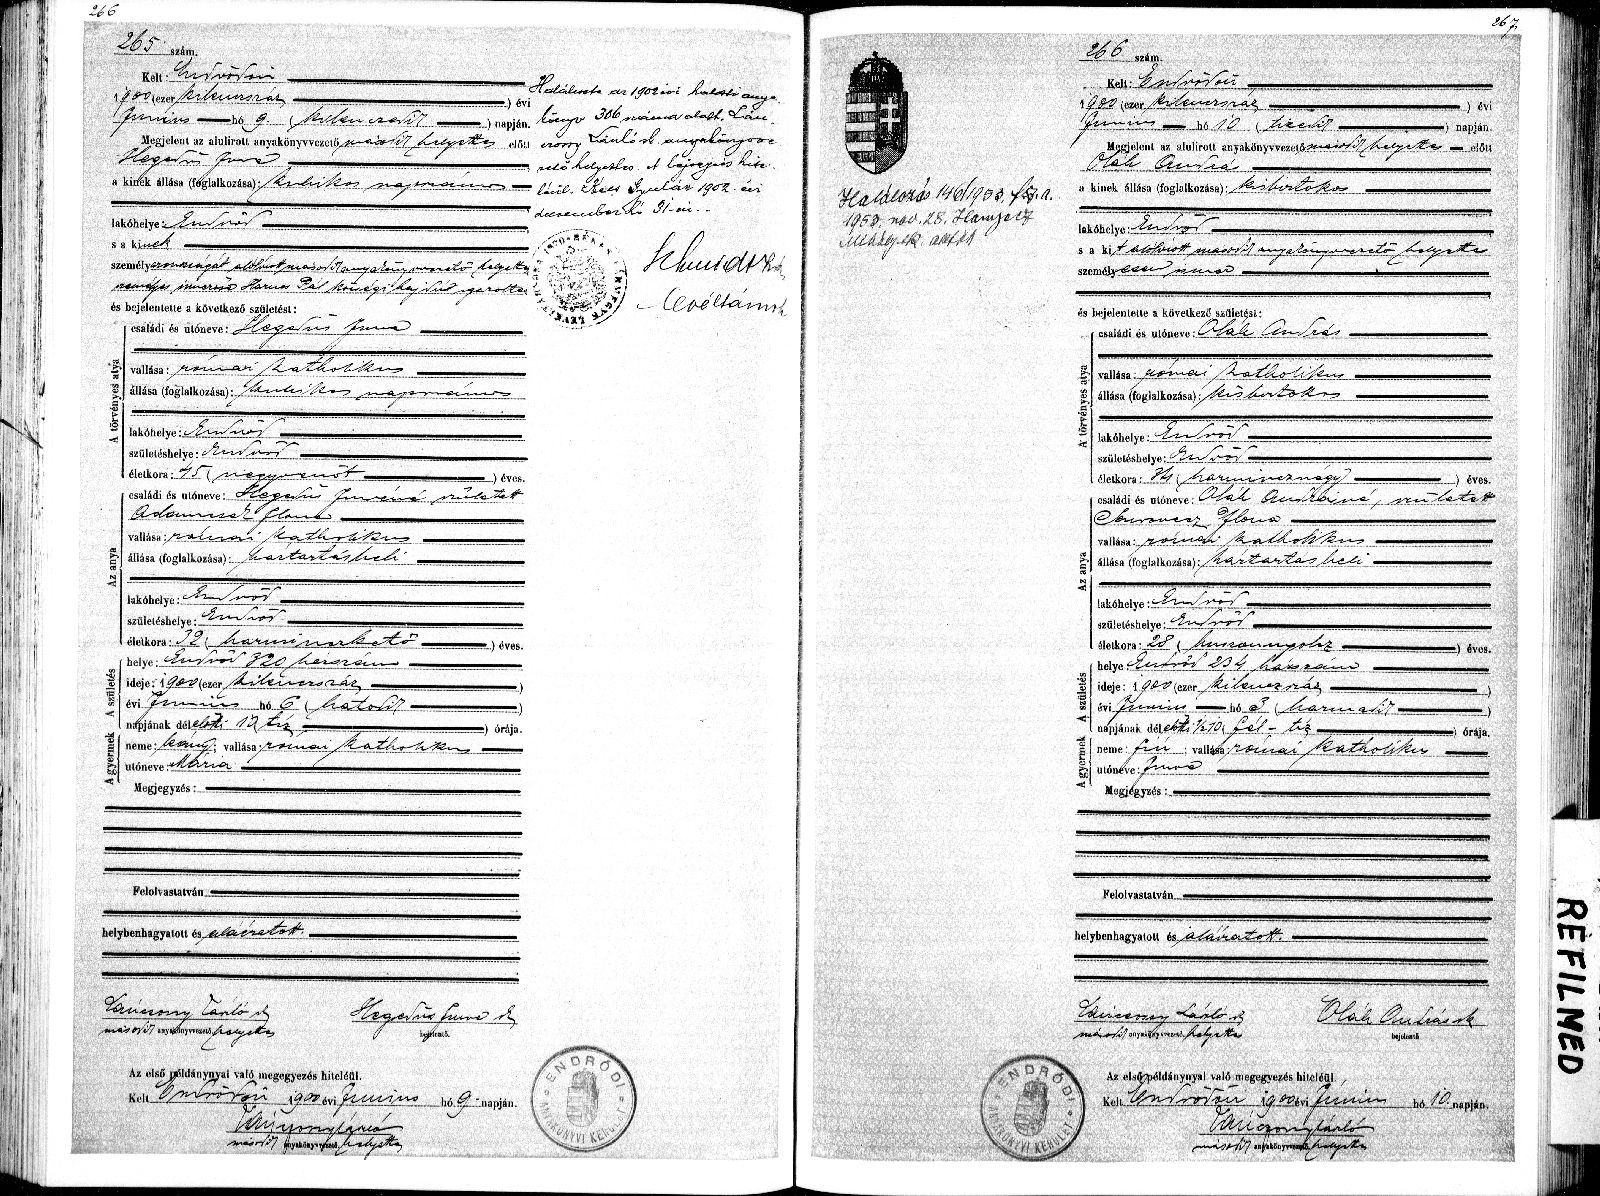 266
265 szám.
Kelt: Endrődön
1900 (ezer kilencszáz) évi
Junius hó 9. (kilencedik) napján.
Megjelent az alulirott anyakönyvvezető második helyettes előtt
Hegedüs Imre
a kinek állása (foglalkozása): kubikos napszámos
lakóhelye: Endrőd
s a kinek
személyazonosságát alólirott második anyakönyvvezető helyettes
személyes ismerőse Hornok Pál községi hajdú igazolta
és bejelentette a következő születést:
A törvényes atya
családi és utóneve: Hegedüs Imre
vallása: római katholikus
állása (foglalkozása): kubikos napszámos
lakóhelye: Endrőd
születéshelye: Endrőd
életkora: 45 (negyvenöt) éves.
Az anya
családi és utóneve: Hegedüs Imréné született
Adamcsik Ilona
vallása: római katholikus
állása (foglalkozása): háztartásbeli
lakóhelye: Endrőd
születéshelye: Endrőd
életkora: 32 (harminczkettő) éves.
A születés
helye: Endrőd 320 házszám
ideje: 1900 (ezer kilencszáz)
évi Junius hó 6 (hatodik)
napjának délelőtti 10 tíz órája.
A gyermek
neme: leány; vallása: római katholikus
utóneve: Mária
Megjegyzés:
Felolvastatván
helybenhagyatott és aláiratott.
Varjasony László sk
második anyakönyvvezető helyettes
Hegedüs Imre sk
bejelentő.
Az első példánynyal való megegyezés hiteléül.
Kelt Endrődön 1900 évi Junius hó 9 napján.
második anyakönyvvezető helyettes
ENDRŐDI
ANYAKÖNYVI KERÜLET
Halálozta az 1902 évi halotti anya-
könyv 306 száma alatt.
László sk. anyakönyvve
zető helyettes. A bejegyzés hite-
léül. Kelt Gyulán 1902. évi
december hó 31-én.
Schmidt
levéltárnok
267.
Halálozás 146/1953, fsz. a.
1953. nov. 28.
266 szám.
Kelt: Endrődön
1900 (ezer kilencszáz) évi
Junius hó 10 (tizedik) napján.
Megjelent az alulirott anyakönyvvezető második helyettes előtt
Oláh András
a kinek állása (foglalkozása): kisbirtokos
lakóhelye: Endrőd
s a kit alólirott második anyakönyvvezető helyettes
személyesen ismer
és bejelentette a következő születést:
A törvényes atya
családi és utóneve: Oláh András
vallása: római katholikus
állása (foglalkozása): kisbirtokos
lakóhelye: Endrőd
születéshelye: Endrőd
életkora: 34 (harmincznégy) éves.
Az anya
családi és utóneve: Oláh Andrásné, született
Ilona
vallása: római katholikus
állása (foglalkozása): háztartásbeli
lakóhelye: Endrőd
születéshelye: Endrőd
életkora: 28 (huszonnyolcz) éves.
A születés
helye Endrőd 234 házszám
ideje: 1900 (ezer kilencszáz)
évi Junius hó 3 (harmadik)
napjának délelőtti 1/2 10 (fél-tíz) órája.
A gyermek
neme: fiu; vallása: római katholikus
utóneve: Imre
Megjegyzés:
Felolvastatván
helybenhagyatott és aláiratott.
László sk
második anyakönyvvezető helyettes
Oláh András sk
bejelentő
Az első példánynyal való megegyezés hiteléül.
Kelt Endrődön 1900 évi Junius hó 10. napján.
második anyakönyvvezető helyettes
ENDRŐDI
ANYAKÖNYVI KERÜLET
REFILMED